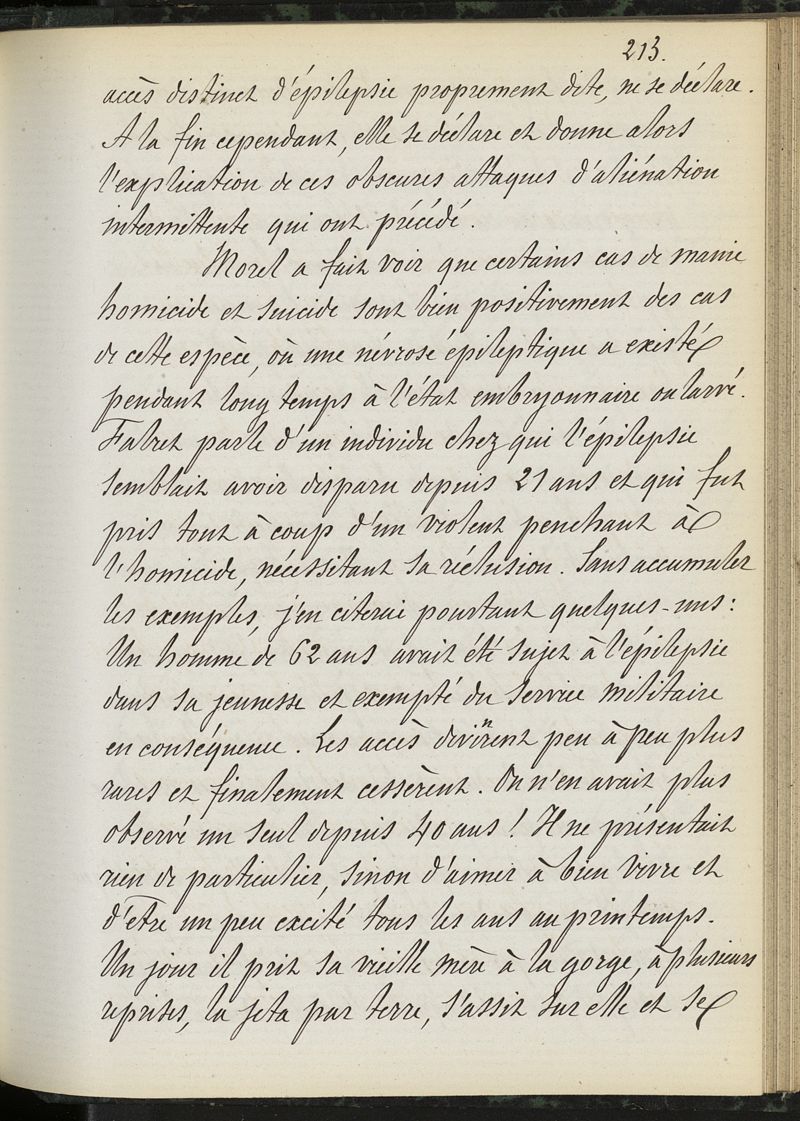 213.
accès distinct d'épilepsie proprement dite, ne se déclare.
A la fin cependant, elle se déclare et donne alors
l'explication de ces obscures attaques d'aliénation
intermittente qui ont précédé.
Morel a fait voir que certains cas de manie
homicide et suicide sont bien positivement des cas
de cette espèce, où une névrose épileptique a existé
pendant long temps à l'état embryonnaire ou larvé.
Falret parle d'un individu chez qui l'épilepsie
semblait avoir disparu depuis 21 ans et qui fut
pris tout à coup d'un violent penchant à
l'homicide, nécessitant sa réclusion. Sans accumuler
les exemples, j'en citerai pourtant quelques-uns:
Un homme de 62 ans avait été sujet à l'épilepsie
dans sa jeunesse et exempté du service militaire
en conséquence. Les accès devinrent peu à peu plus
rares et finalement cessèrent. On n'en avait plus
observé un seul depuis 40 ans! Il ne présentait
rien de particulier, sinon d'aimer à bien vivre et
d'être un peu excité tous les ans au printemps.
Un jour il prit sa vieille mère à la gorge, à plusieurs
reprises, la jeta par terre, s'assit sur elle et se